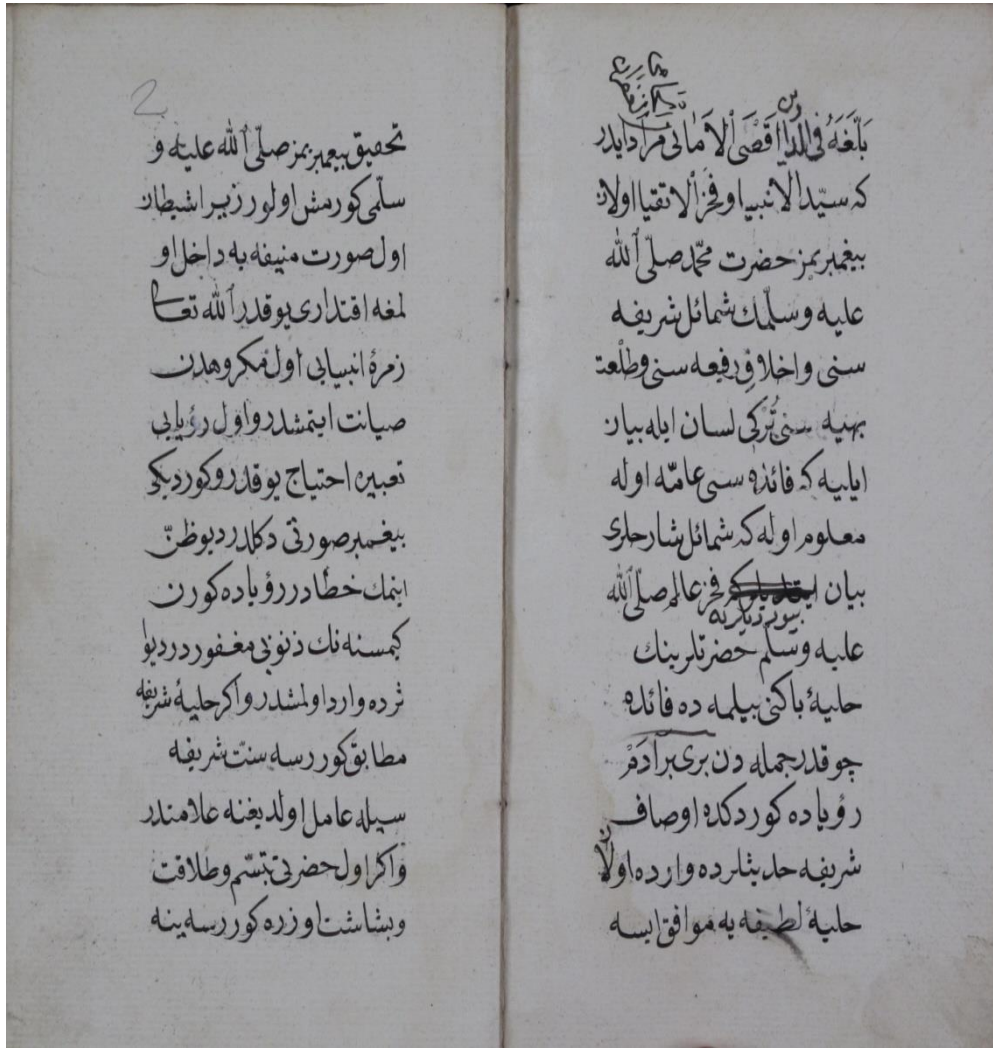 بَلَّغَهُ فی الدارین اَقْصَی اْلاَمٰانی مراد ایدر
که سیّد الانبیا و فخر الاتقیا اولان
پیغمبریمز حضرت محمّد صلّی ٱلله
علیه و سلّمك شمائل شریفه
سنی و اخلاق رفیعه سنی و طلعت
بهیه سنی تُرْکی لسان ایله بیان
ایلیه که فائده سی عامّه اوله
معلوم اوله که شمائل شارحلری
بیان بیوردیلر که فخر عالم صلّی ٱلله
علیه و سلّم حضرتلرینك
حلیۀ پاکنی بیلمه ده فائده
چوقدر جمله دن بری بر اٰدَمْ
رؤیاده کوردکده اوصاف
شریفه حدیثلرده وارده اولان
حلیۀ لطیفه یه موافق ایسه
2
تحقیق پیغمبریمز صلّی ٱلله علیه و
سلّمی کورمش اولور زیرا شیطان
اول صورت منیفه یه داخل او
لمغه اقتداری یوقدر ٱلله تعا
زمرۀ انبیایی اول مکروهدن
صیانت ایتمشدر و اول رؤیایی
تعبیره احتیاج یوقدر و کوردیکی
پیغمبر صورتی دکلدر دیو ظنّ
ایتمك خطادر رؤیاده کورن
کیمسنه نك ذنوبی مغفوردر دیو ا
ثرده وارد اولمشدر و اکر حلیۀ شریفه
مطابق کوررسه سنت شریفه
سیله عامل اولدیغنه علامتدر
و اکر اول حضرتی تبسّم و طلاقت
و بشاشت اوزره کوررسه ینه